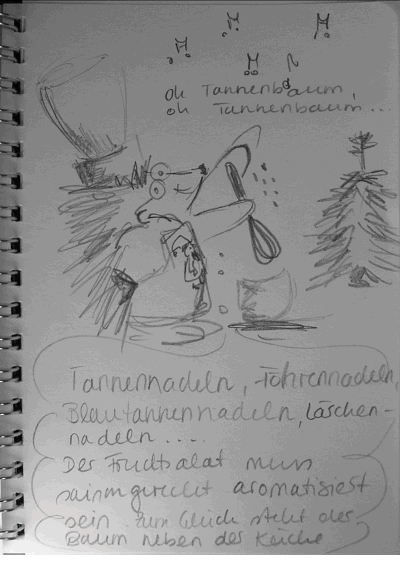 oh Tannenbaum,
oh Tannenbaum...
Tannennadeln, Föhrennadeln,
Blautannennadeln, Lärchen-
nadeln ....
Der Fruchtsalat muss
saisongerecht aromatisiert
sein. Zum Glück steht der
Baum neben der Küche